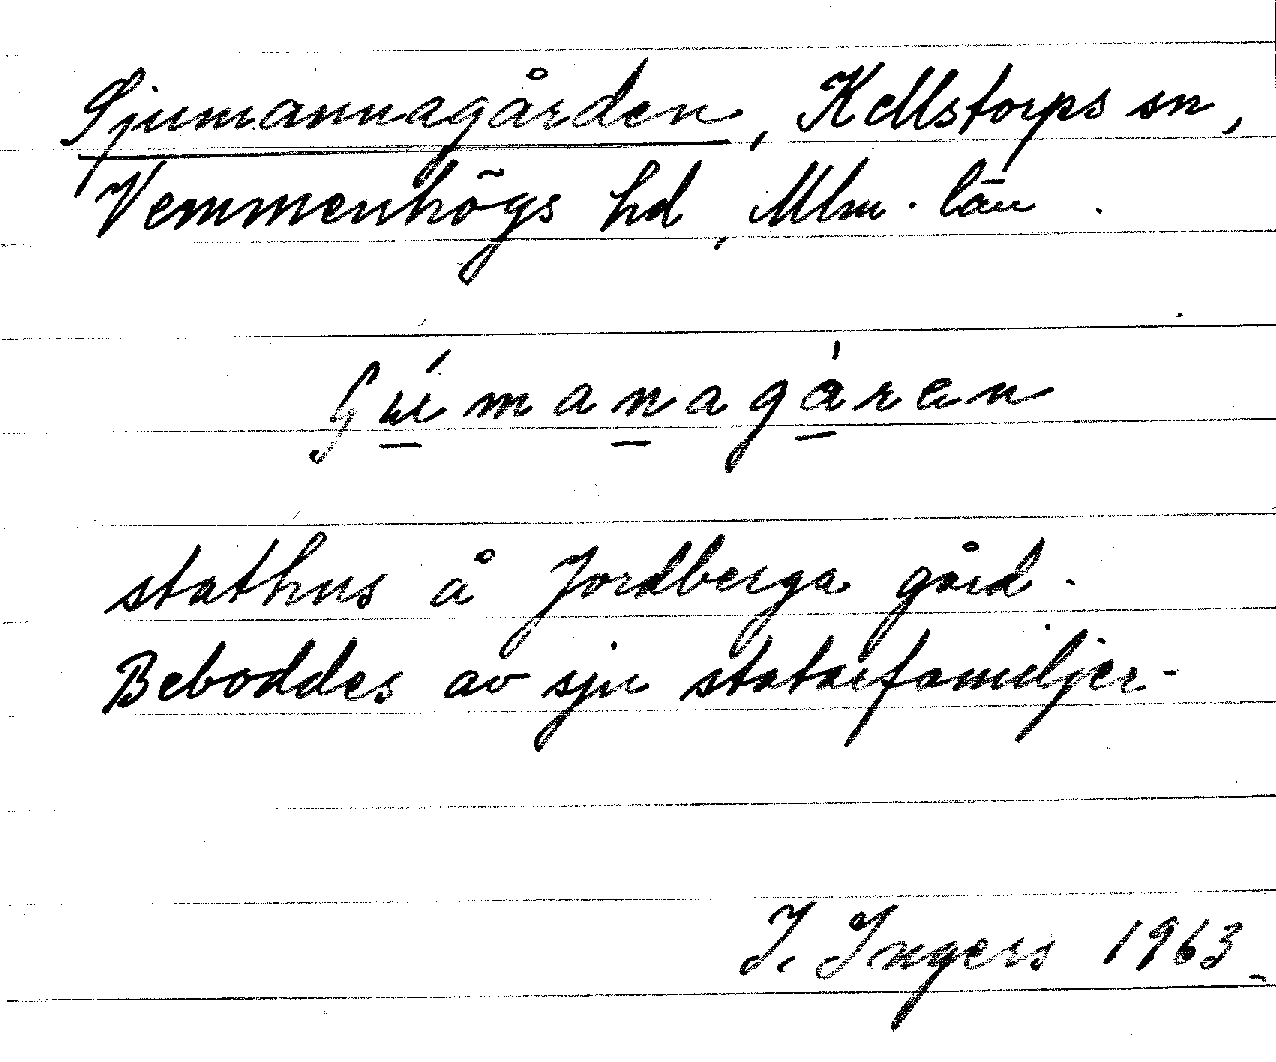 Sjumannagården, Kellstorps sn,
Vemmenhögs hd, Mlm. län.
ʃu̱´mana̱gå̱`ren
stathus å Jordberga gård.
Beboddes av sju statarfamiljer.
I. Ingers 1963